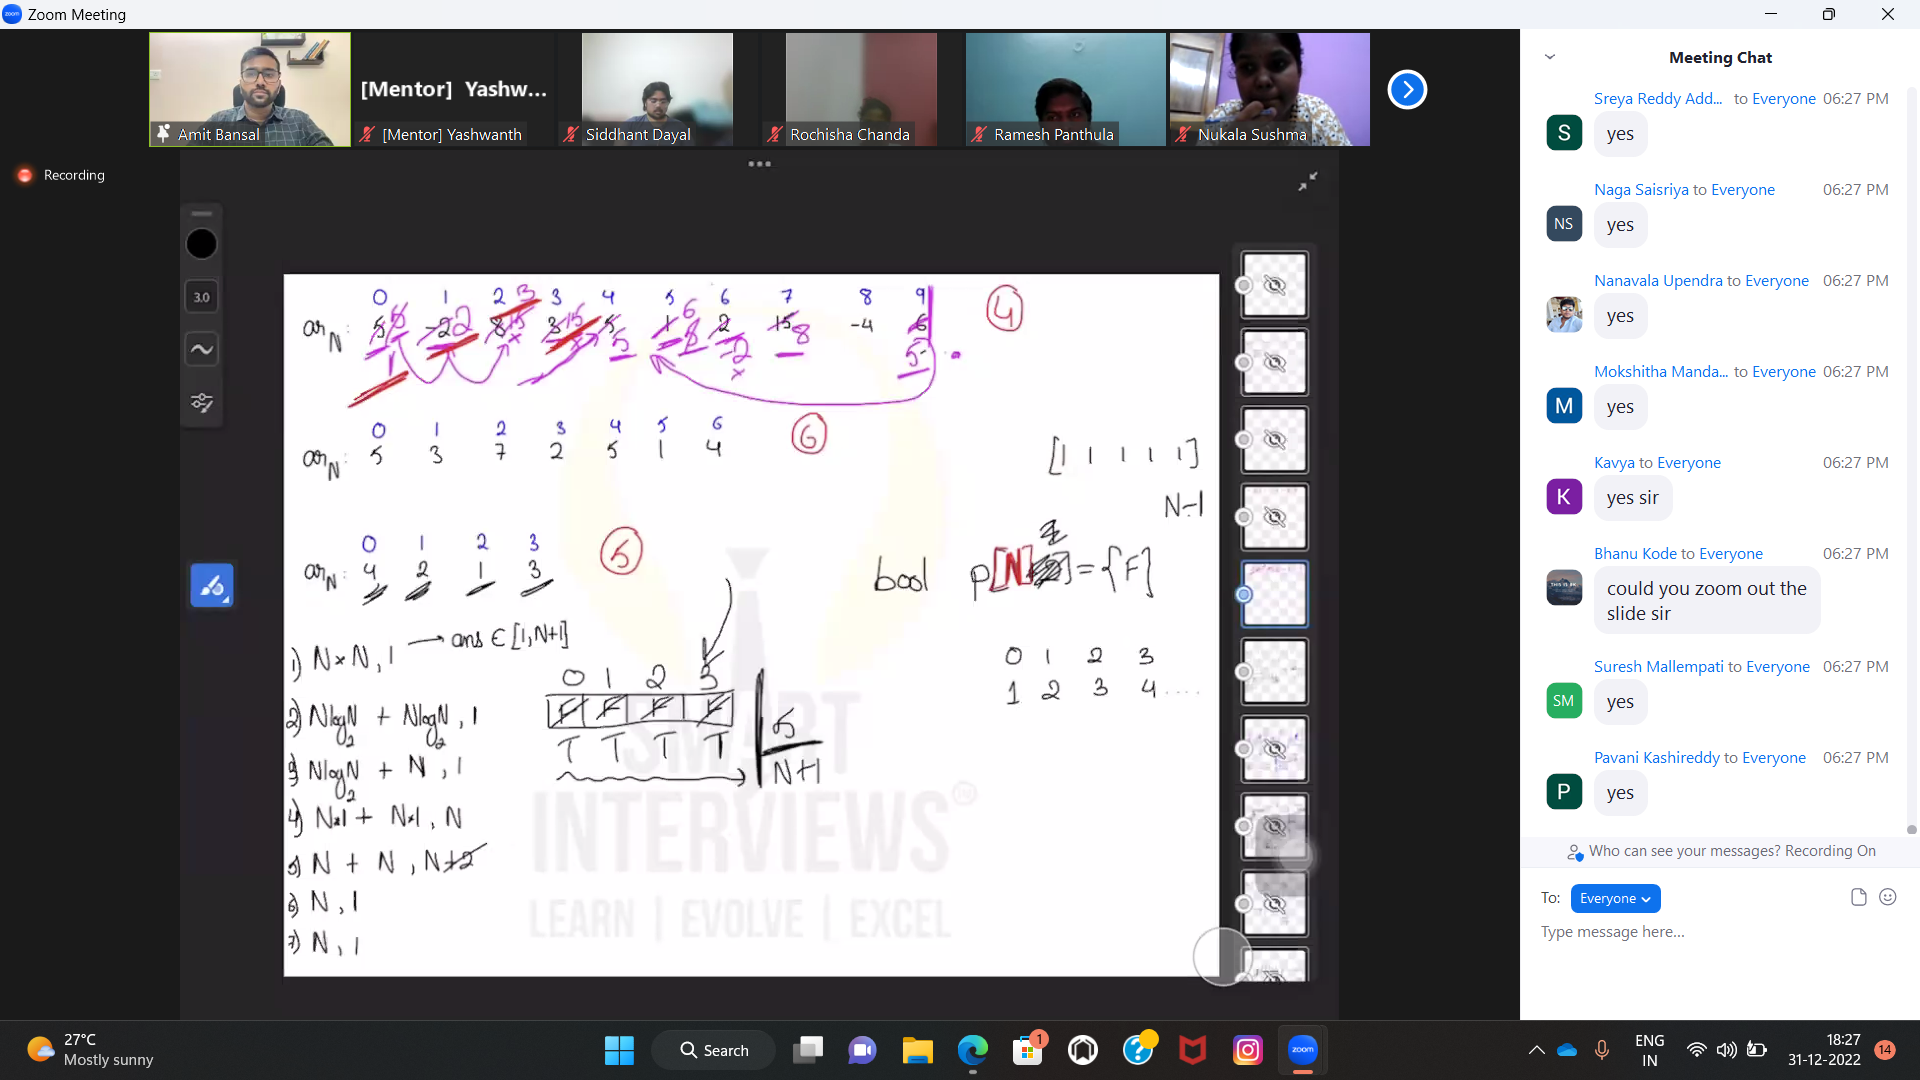 Zoom Meeting
Amit Bansal
[Mentor] Yashw...
[Mentor] Yashwanth
Siddhant Dayal
Rochisha Chanda
Ramesh Panthula
Nukala Sushma
Recording
3.0
0 1 2 3 4 5 6 7 8 9
arN:
-4
4
0 1 2 3 4 5 6
arN: 5 3 7 2 5 1 4
6
[1 1 1 1 1]
N-1
0 1 2 3
arN: 4 2 1 3
5
bool p[N] = {F}
1) N×N, 1 → ans ∈ [1, N+1]
0 1 2 3
F F F F
T T T T
5
N+1
0 1 2 3
1 2 3 4 ....
2) Nlog2N + Nlog2N, 1
3) Nlog2N + N, 1
4) N×1 + N×1, N
5) N + N, N+2
6) N, 1
7) N, 1
SMART
INTERVIEWS
LEARN | EVOLVE | EXCEL
Meeting Chat
Sreya Reddy Add... to Everyone 06:27 PM
S
yes
Naga Saisriya to Everyone 06:27 PM
NS
yes
Nanavala Upendra to Everyone 06:27 PM
yes
Mokshitha Manda... to Everyone 06:27 PM
M
yes
Kavya to Everyone 06:27 PM
K
yes sir
Bhanu Kode to Everyone 06:27 PM
could you zoom out the
slide sir
Suresh Mallempati to Everyone 06:27 PM
SM
yes
Pavani Kashireddy to Everyone 06:27 PM
P
yes
Who can see your messages? Recording On
To: Everyone
Type message here...
27°C
Mostly sunny
Search
1
zoom
ENG
IN
18:27
31-12-2022
14